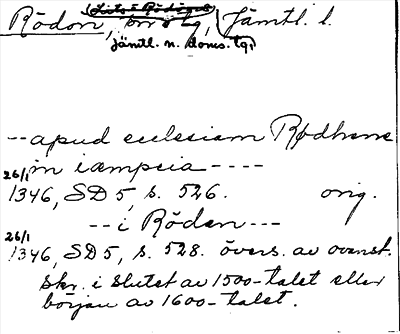 Rödön, sn o tg, Jämtl. l.
Jämtl. n. doms. tg,
--apud ecclesiam Rødhene
in iampcia----
26/1
1346, SD 5, s. 526. orig.
--i Röden---
26/1
1346, SD 5, s. 528. övers. av ovanst.
skr. i slutet av 1500-talet eller
början av 1600-talet.